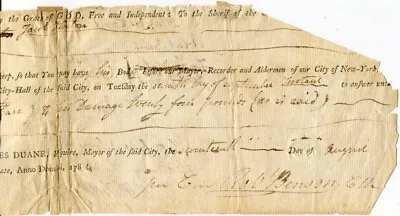 the Grace of GOD, Free and Independent: To the Sheriff of the
Jacob
keep, so that You may have his Body before our Mayor, Recorder and Aldermen of our City of New-York,
City-Hall of the said City, on Tuesday the seventh Day of September Instant to answer unto
Damage twenty four pounds (as is said)
ES DUANE, Esquire, Mayor of the said City, the seventeenth Day of August
Anno Domini, 178
per Cur Robt Benson Clk